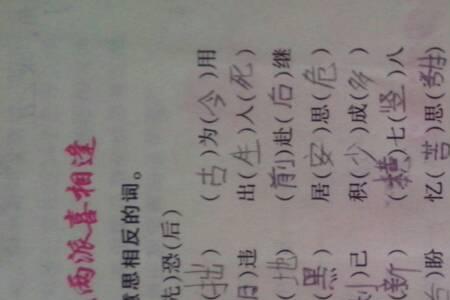 两派喜相逢
意思相反的词。
先)恐(后)
(拙) (古)为(今)用
违 出(生)入(死)
(地) (前)赴(后)继
(黑) 居(安)思(危)
)己 积(少)成(多)
(新) (横)七(竖)八
)盼 忆(苦)思(甜)